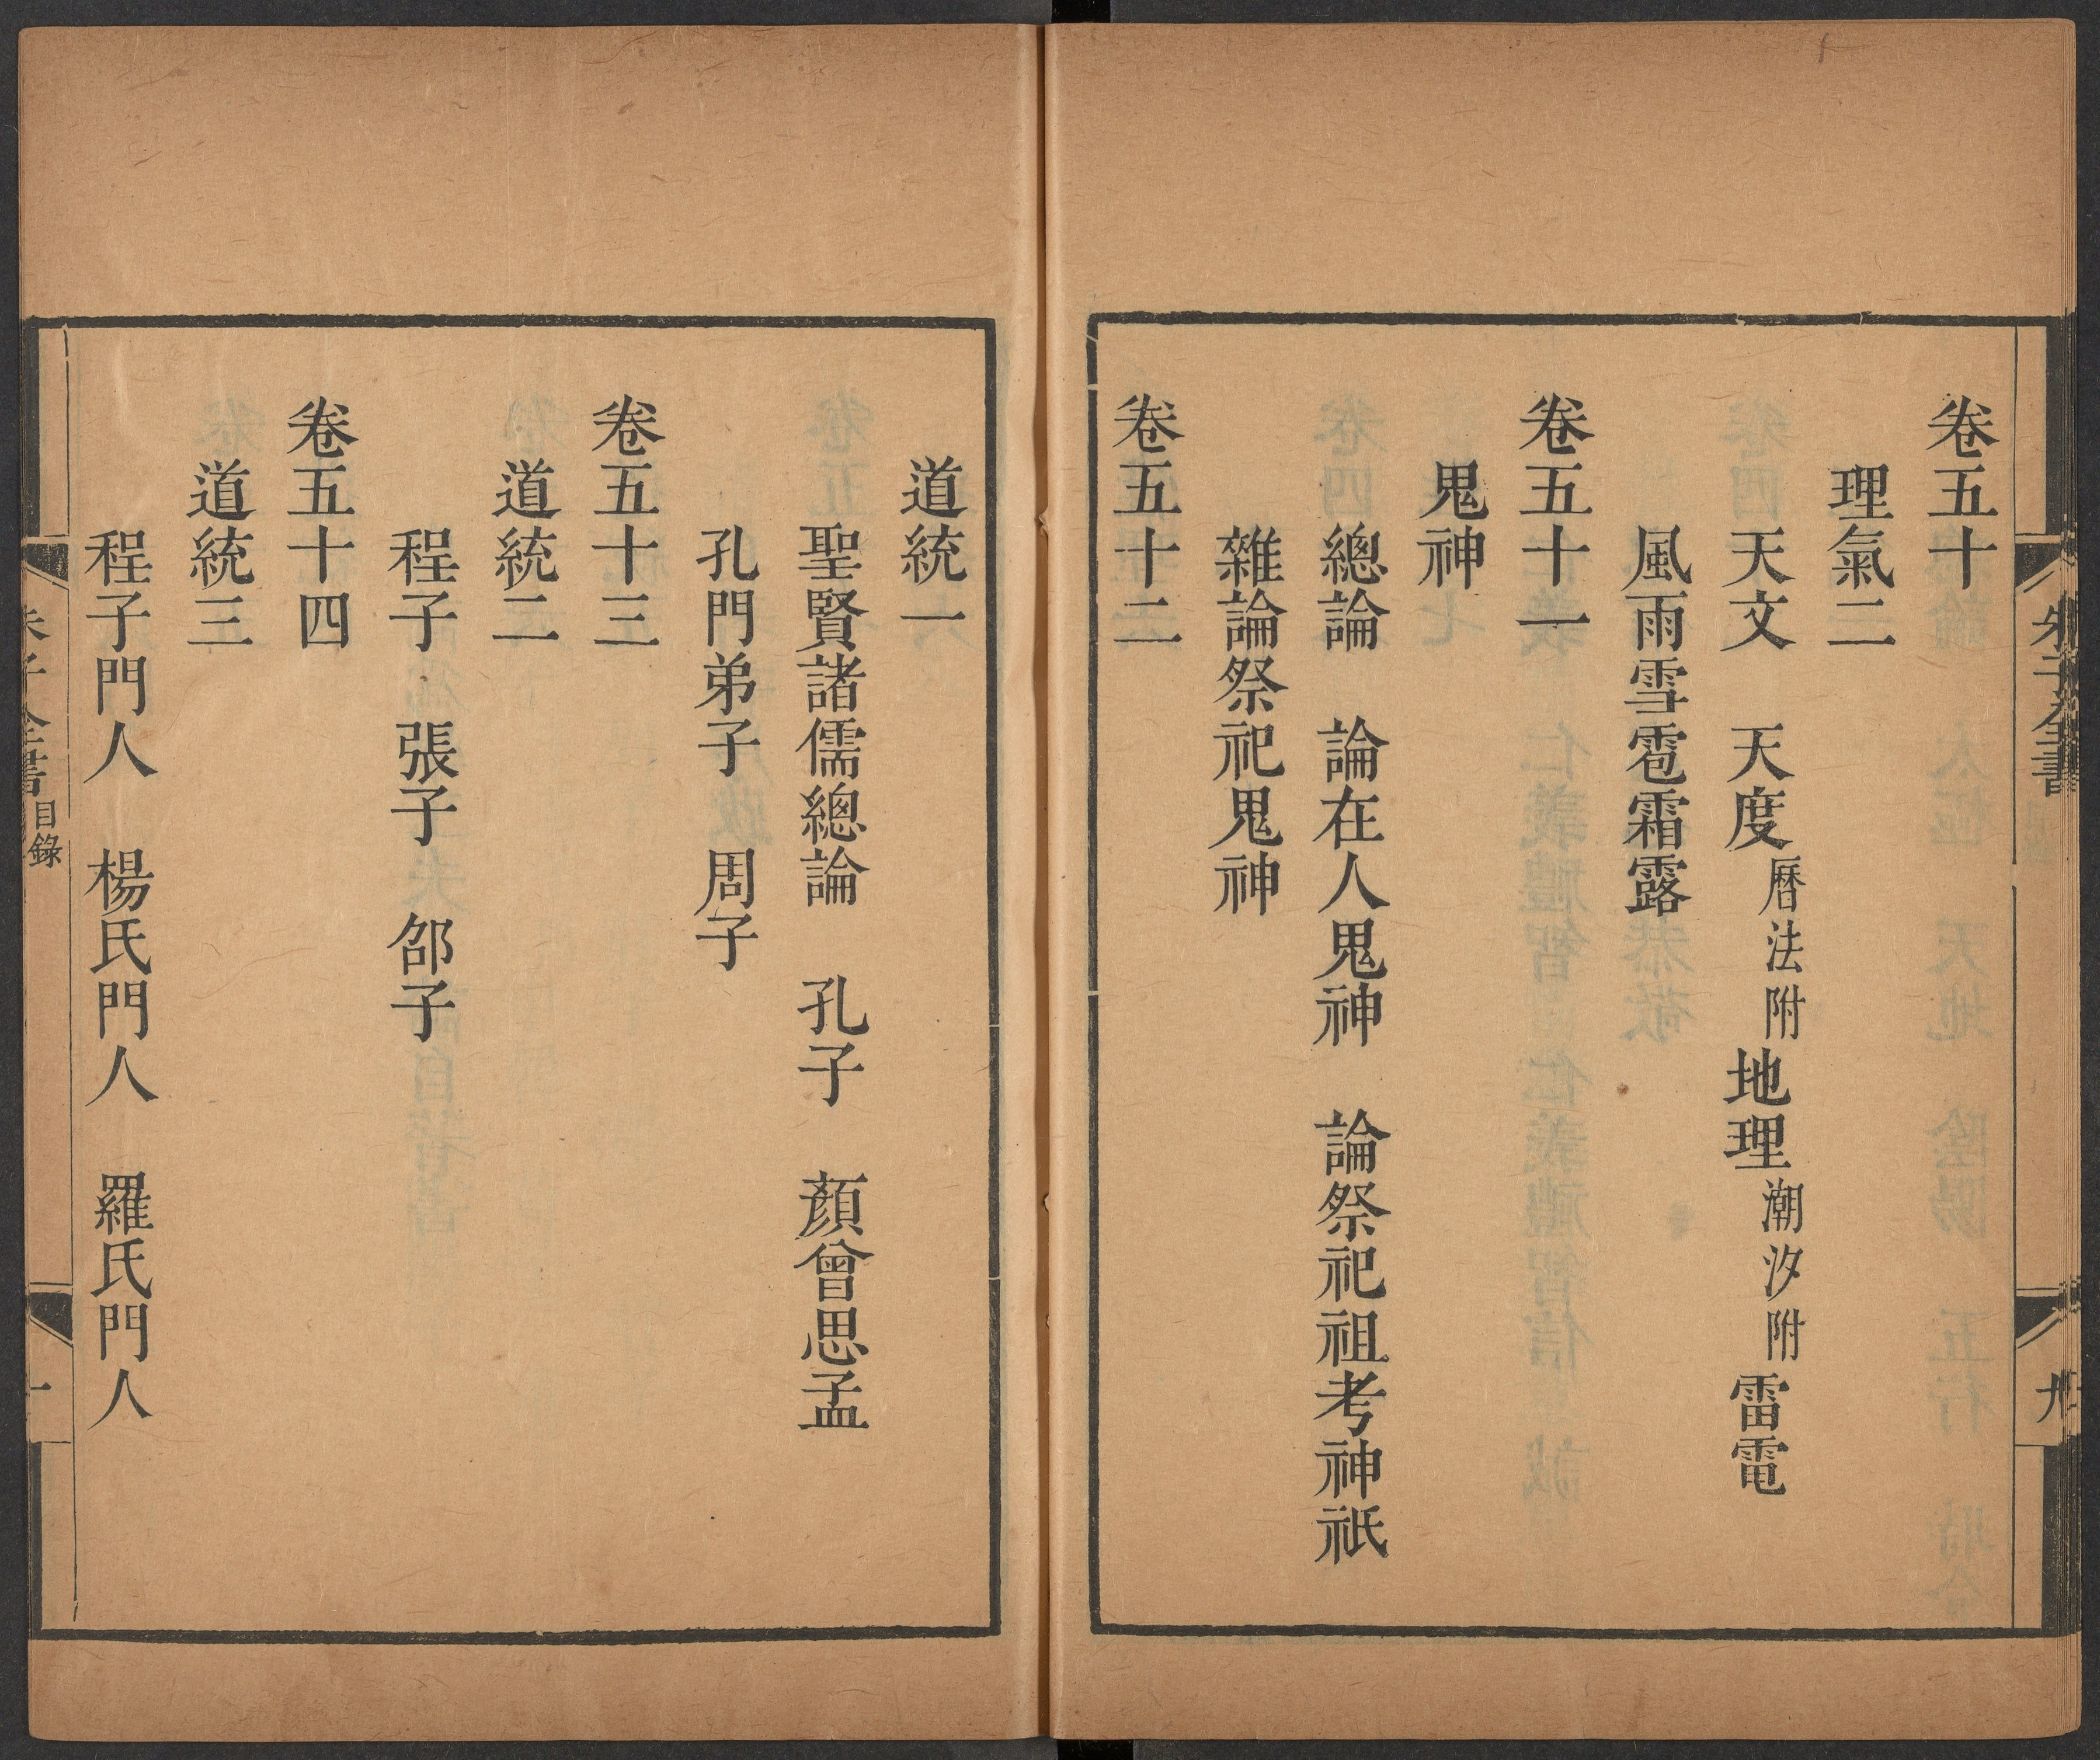 卷五十
理氣二
天文　天度曆法附地理潮汐附雷電
風雨雪雹霜露
卷五十一
鬼神
總論　論在人鬼神　論祭祀祖考神祇
雜論祭祀鬼神
卷五十二
道統一
聖賢諸儒總論　孔子　顏曾思孟
孔門弟子　周子
卷五十三
道統二
程子　張子　邵子
卷五十四
道統三
程子門人　楊氏門人　羅氏門人
朱子全書目錄